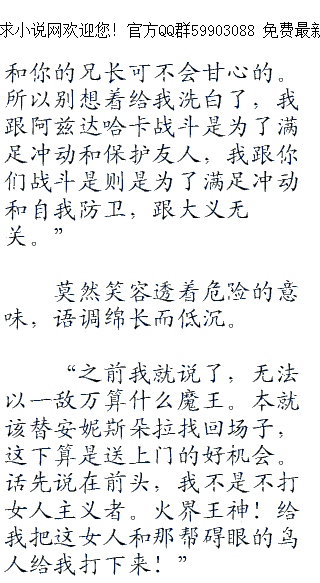 求小说网欢迎您！官方QQ群59903088 免费最新
和你的兄长可不会甘心的。
所以别想着给我洗白了，我
跟阿兹达哈卡战斗是为了满
足冲动和保护友人，我跟你
们战斗是则是为了满足冲动
和自我防卫，跟大义无
关。”
莫然笑容透着危险的意
味，语调绵长而低沉。
“之前我就说了，无法
以一敌万算什么魔王。本就
该替安妮斯朵拉找回场子，
这下算是送上门的好机会。
话先说在前头，我不是不打
女人主义者。火界王神！给
我把这女人和那帮碍眼的鸟
人给我打下来！”